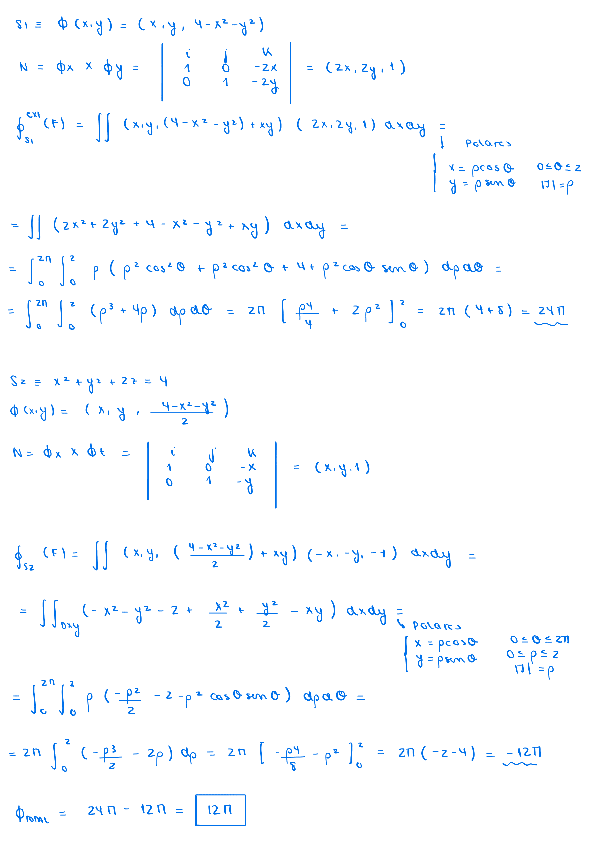 S1 ≡ ϕ (x,y) = (x,y, 4-x²-y²)
N = ϕx × ϕy = | i j k | 1 0 -2x | 0 1 -2y | = (2x,2y,1)
∮S1^ext (F) = ∬ (x,y,(4-x²-y²)+xy) (2x,2y,1) dxdy =
↓ Polares
{ x = ρcosθ 0≤θ≤2
y = ρsenθ |J|=ρ
= ∬ (2x²+2y²+4-x²-y²+xy) dxdy =
= ∫₀^2π ∫₀^2 ρ (ρ² cos²θ + ρ² cos²θ + 4 + ρ² cosθ senθ) dρdθ =
= ∫₀^2π ∫₀^2 (ρ³ + 4ρ) dρdθ = 2π [ ρ⁴/4 + 2ρ² ]₀^2 = 2π (4+8) = 24π
S2 ≡ x²+y²+2z = 4
ϕ(x,y) = (x, y, (4-x²-y²)/2)
N = ϕx × ϕt = | i j k | 1 0 -x | 0 1 -y | = (x,y,1)
∮S2 (F) = ∬ (x,y, ((4-x²-y²)/2) + xy) (-x,-y,-1) dxdy =
= ∬Dxy (-x²-y²-2 + x²/2 + y²/2 - xy) dxdy =
↓ Polares
{ x = ρcosθ 0≤θ≤2π
y = ρsenθ 0≤ρ≤2
|J|=ρ
= ∫₀^2π ∫₀^2 ρ (-ρ²/2 - 2 - ρ² cosθ senθ) dρdθ =
= 2π ∫₀^2 (-ρ³/2 - 2ρ) dρ = 2π [ -ρ⁴/8 - ρ² ]₀^2 = 2π (-2-4) = -12π
ϕTOTAL = 24π - 12π = 12π